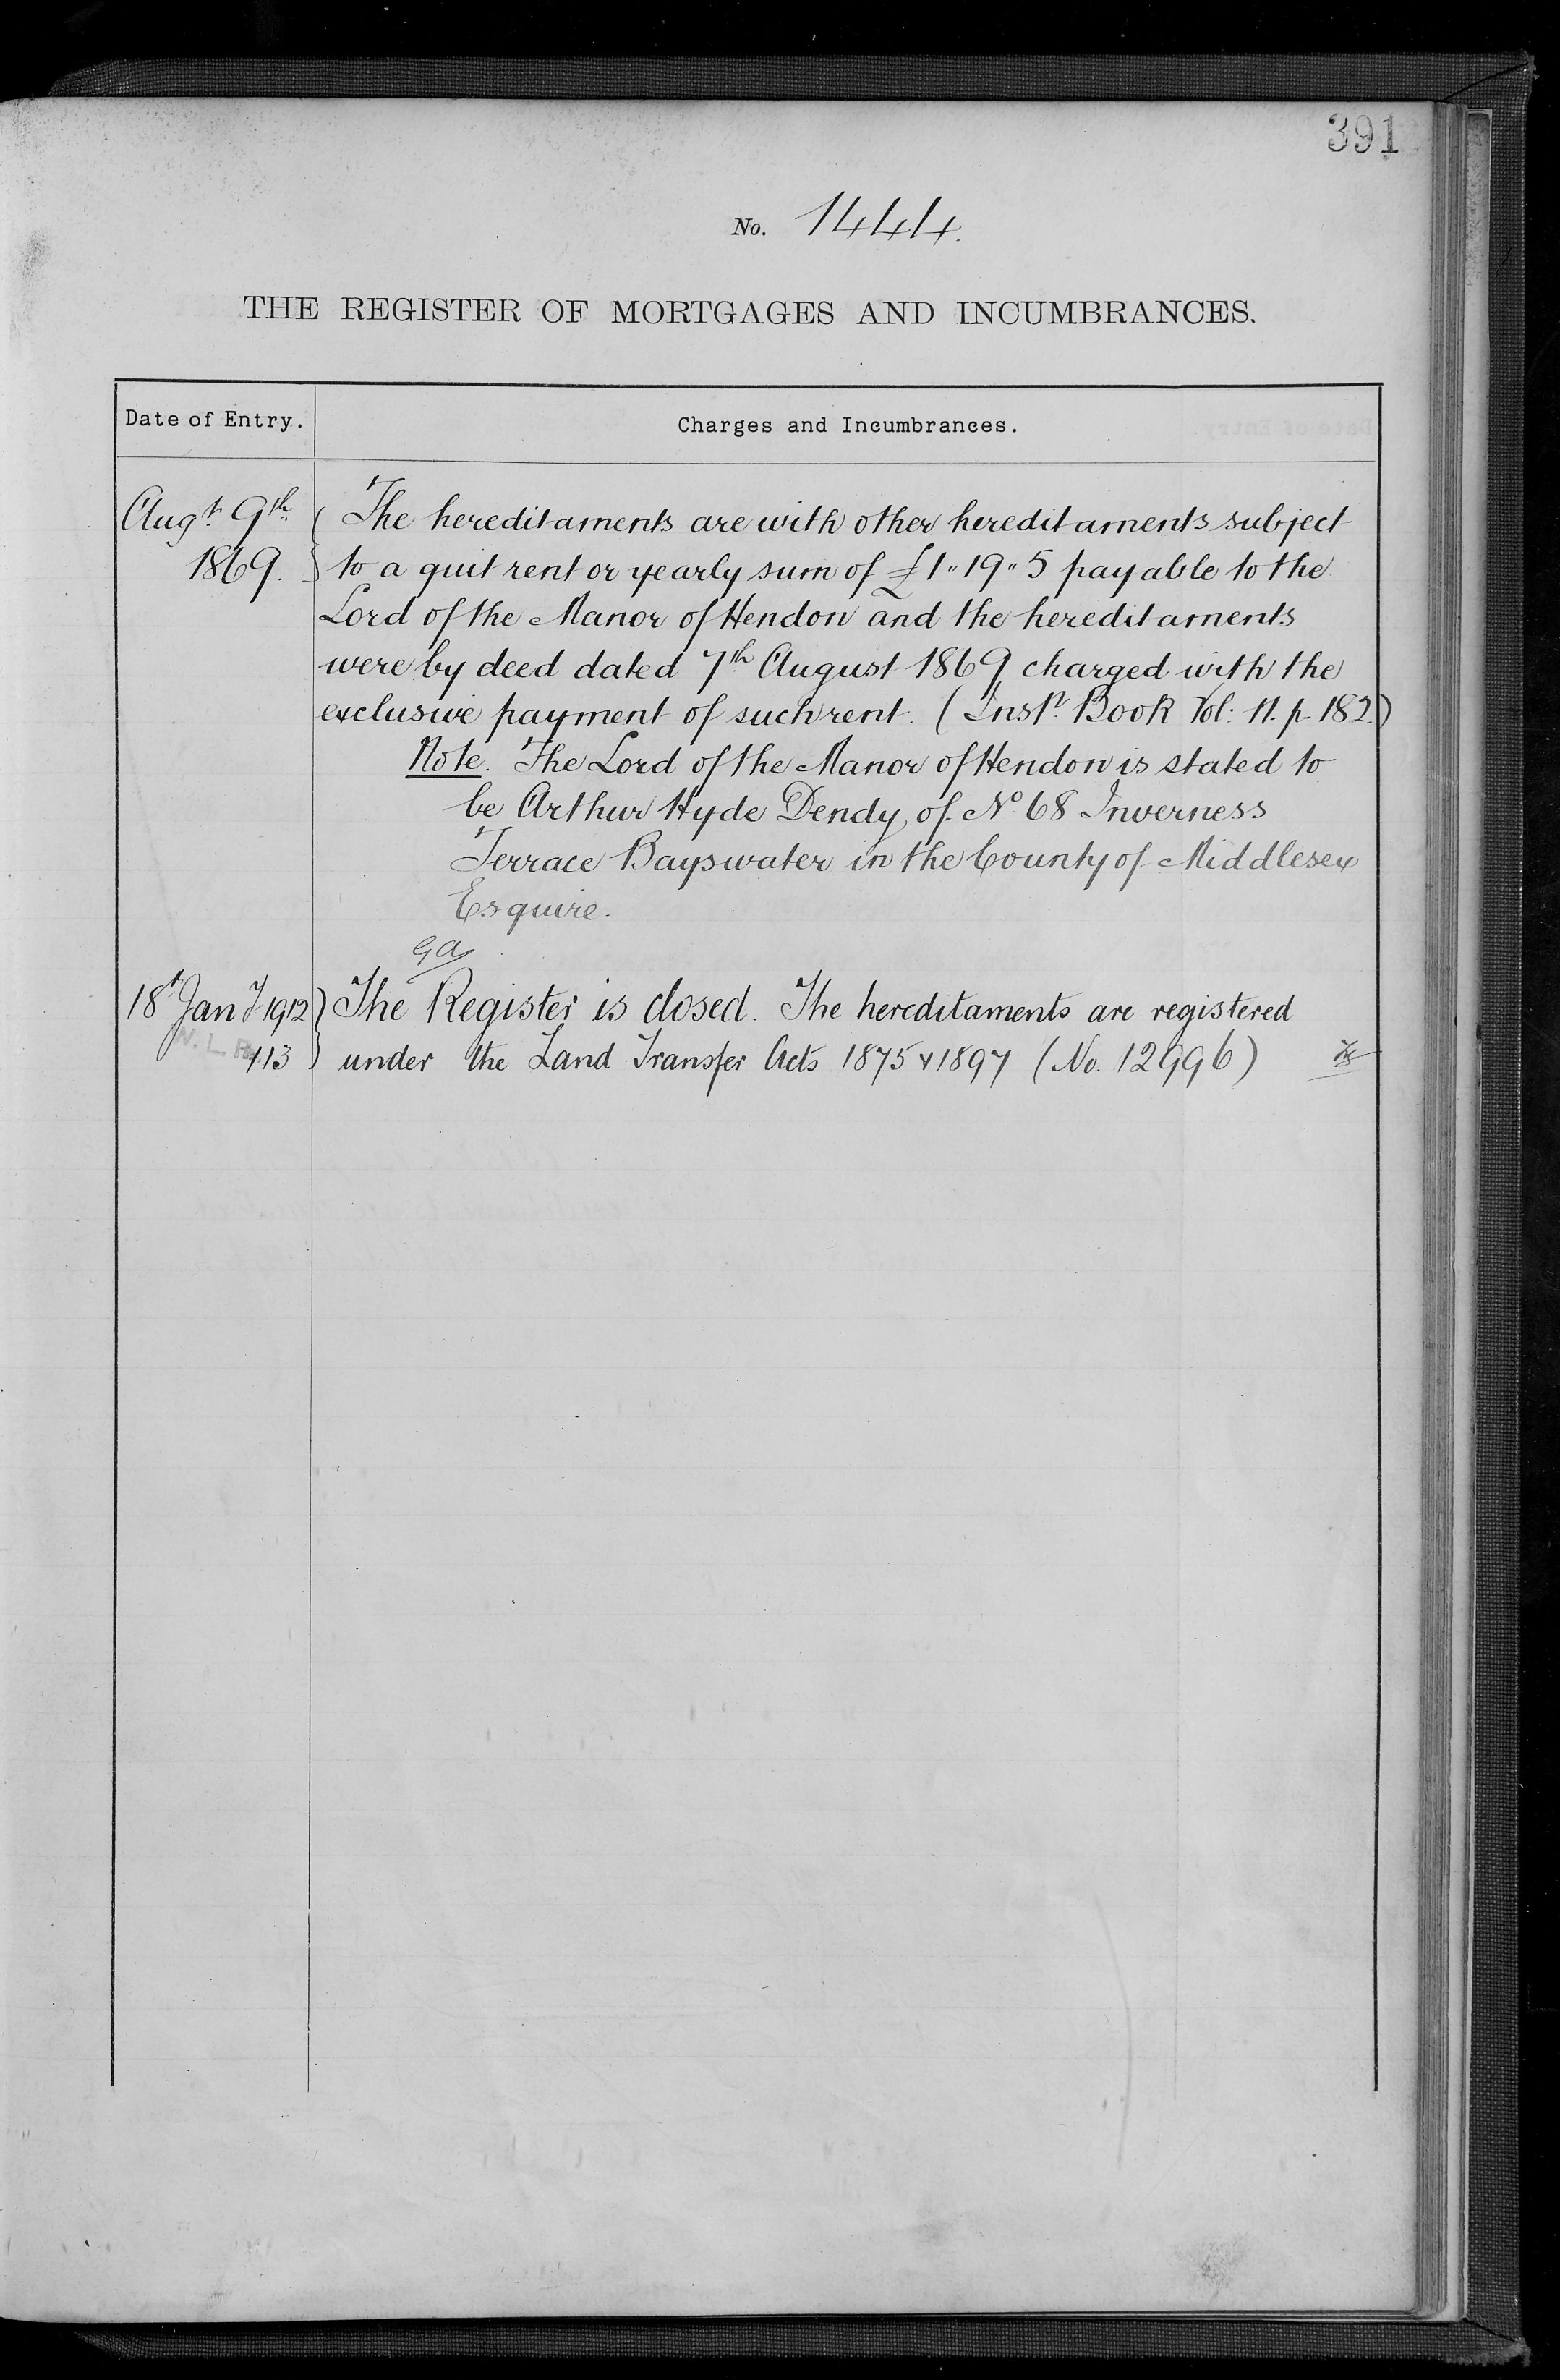 391
No. 1444.
THE REGISTER OF MORTGAGES AND INCUMBRANCES.
Date of Entry. Charges and Incumbrances.
Augt. 9th. The hereditaments are with other hereditaments subject
1869. to a quit rent or yearly sum of £1"19"5 payable to the
Lord of the Manor of Hendon and the hereditaments
were by deed dated 7th August 1869 charged with the
exclusive payment of such rent. (Inst. Book Vol: 11. p. 182.)
Note. The Lord of the Manor of Hendon is stated to
be Arthur Hyde Dendy, of No. 68 Inverness
Terrace Bayswater in the County of Middlesex
Esquire.
18 Jany 1912 The Register is closed. The hereditaments are registered
113 under the Land Transfer Acts 1875 & 1897 (No. 12996)